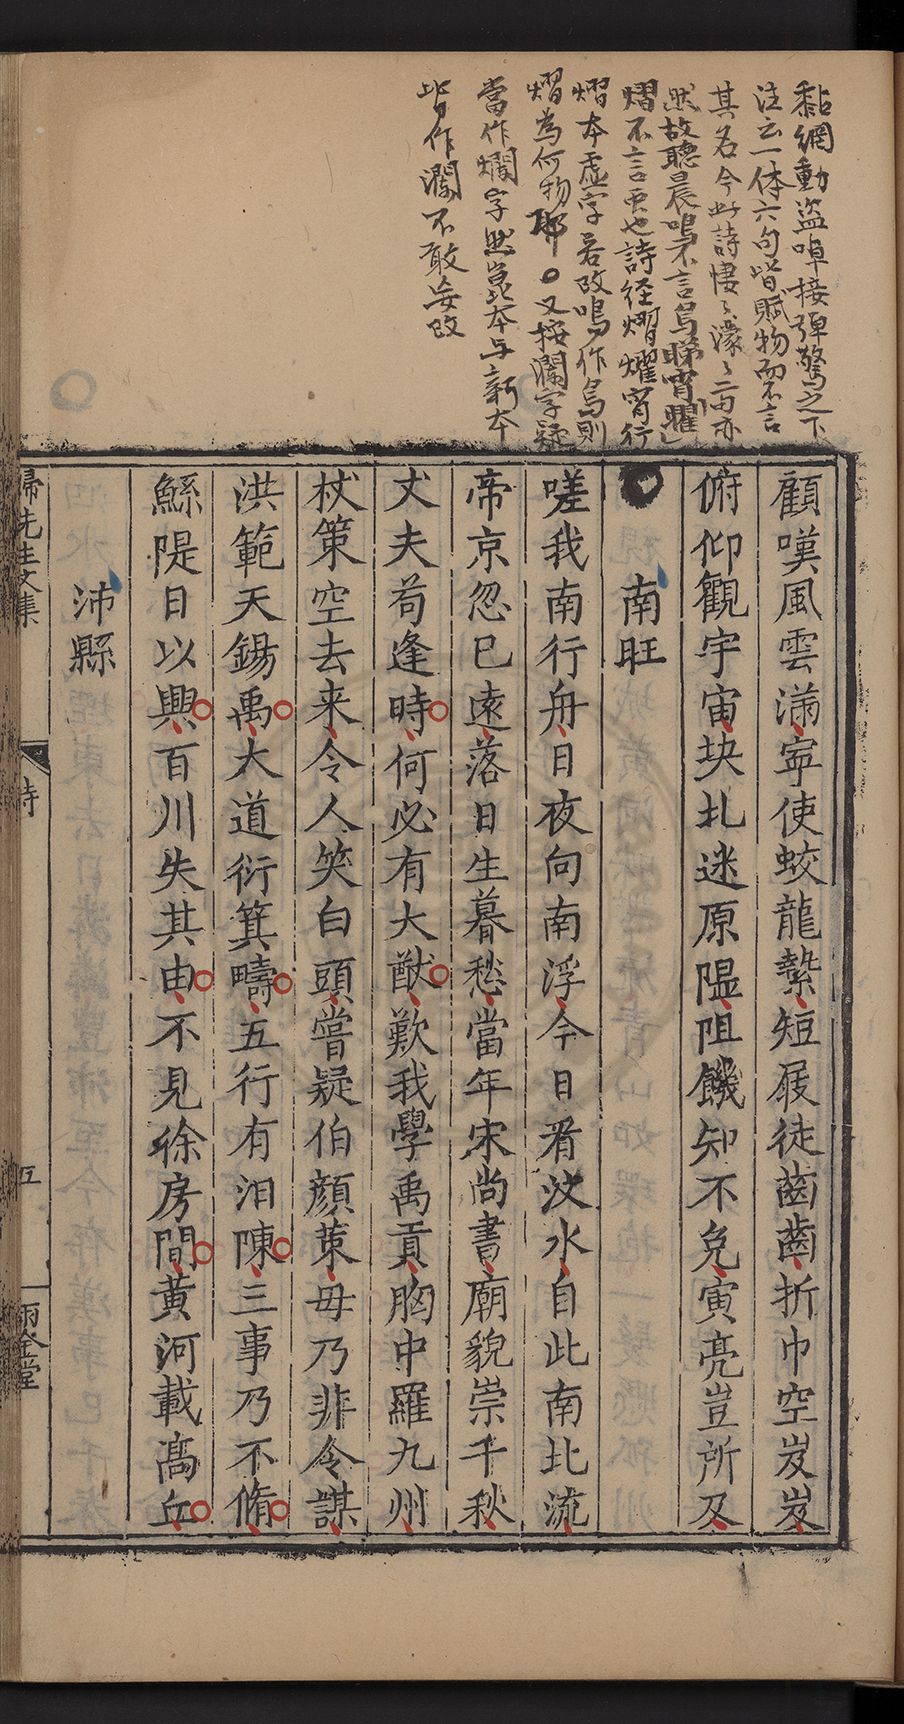 黏網動盜啅接弹驚之下
注云一体六句皆賦物而不言
其名今此詩悽〻濛〻二句亦
然故聽晨鳴不言烏睇宵耀
熠不言至也詩径熠燿宵行
熠本虛字若改鳴作烏則
熠為何物耶○又按瀾字疑
當作爛字然崑本与新本
皆作瀾不敢妄改
顧嘆風雲滿寧使蛟龍蟄短屐徒齒齒折巾空岌岌
俯仰觀宇宙坱圠迷原隰阻饑知不免寅亮豈所及
南旺
嗟我南行舟日夜向南浮今日看汶水自此南北流
帝京忽已遠落日生暮愁當年宋尚書廟貌崇千秋
丈夫苟逢時何必有大猷歎我學禹貢胸中羅九州
杖策空去来令人笑白頭嘗疑伯顔策毋乃非令謀
洪範天錫禹大道衍箕疇五行有汨陳三事乃不脩
鯀隄日以興百川失其由不見徐房間黃河載高丘
沛縣
歸先生文集
詩
五
雨金堂